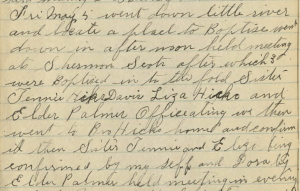 Friday 5 went down little river
and locate a place to Baptise went
down in after noon held meeting
at Shermon Scots after which 3
were Baptised in to the fold Sister
Jennie Davis Liza Hicks and
Elder Palmer Officeating we then
went to Bro Hicks home and
it then Sister Jennie and Eliza being
confirmed by me Jeff and
Elder Palmer held meeting in evening